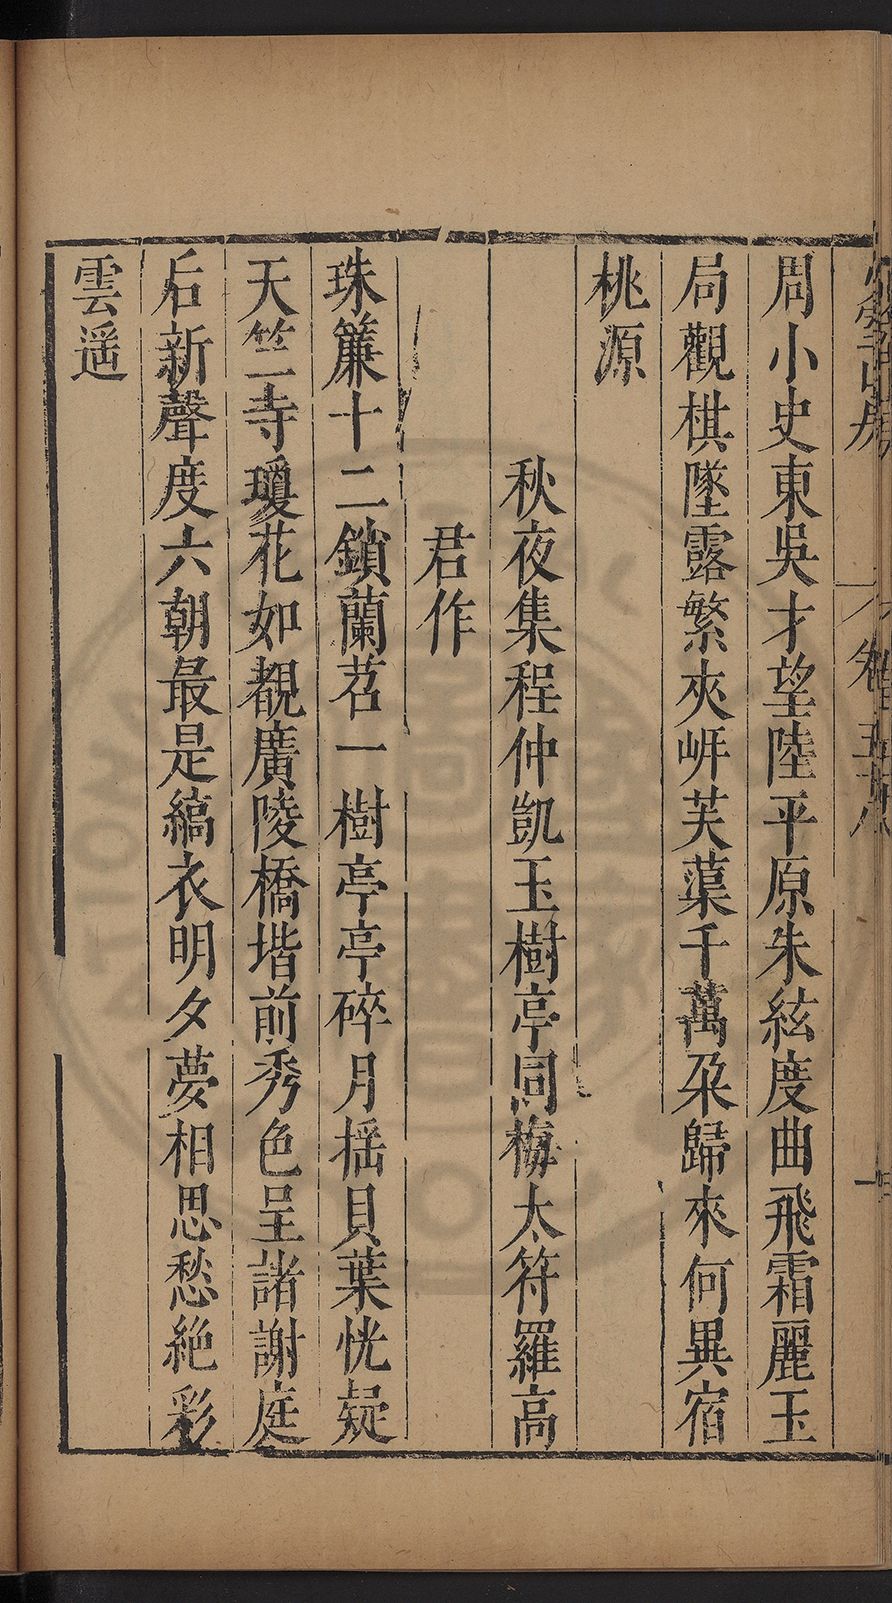 周小史東吳才望陸平原朱絃度曲飛霜麗玉
局觀棋墜露繁夾岍芙蕖千萬朶歸來何異宿
桃源
秋夜集程仲凱玉樹亭同梅太符羅高
君作
珠簾十二鎖蘭苕一樹亭亭碎月揺貝葉恍疑
天竺寺瓊花如覩廣陵橋堦前秀色呈諸謝庭
后新聲度六朝最是縞衣明夕夢相思愁絶彩
雲遥